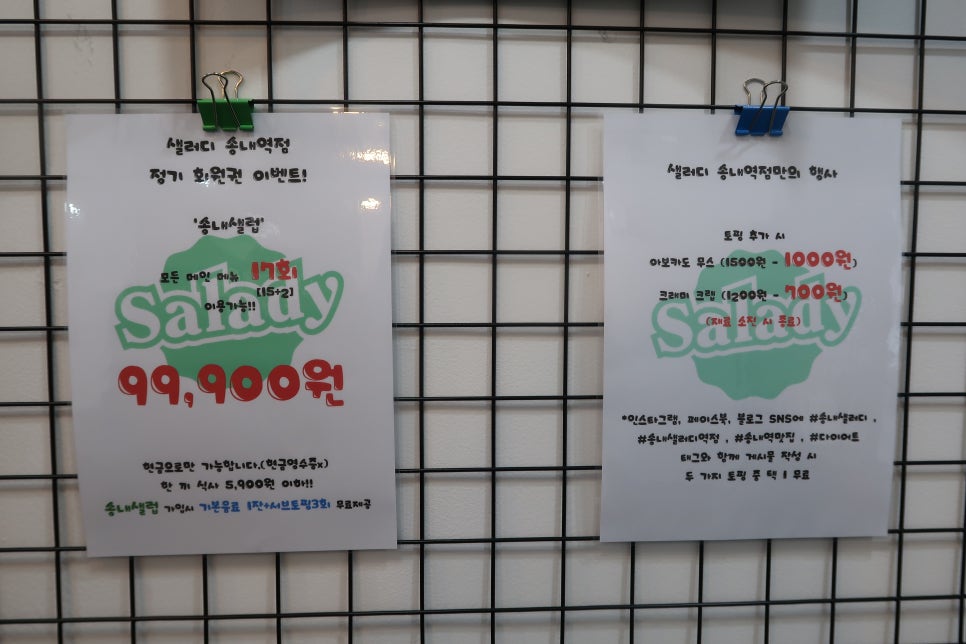 샐러디 송내역점
정기 회원권 이벤트!
'송내샐럽'
모든 메인 메뉴 17회
[15+2]
이용가능!!
Salady
99,900원
현금으로만 가능합니다.(현금영수증x)
한 끼 식사 5,900원 이하!!
송내샐럽 가입시 기본음료 1잔+서브토핑3회 무료제공
샐러디 송내역점만의 행사
토핑 추가 시
아보카도 무스 (1500원 - 1000원)
크래미 크랩 (1200원 - 700원)
(재료 소진 시 종료)
Salady
*인스타그램, 페이스북, 블로그 SNS에 #송내샐러디 ,
#송내샐러디역점 , #송내역맛집 , #다이어트
태그와 함께 게시물 작성 시
두 가지 토핑 중 택 1 무료